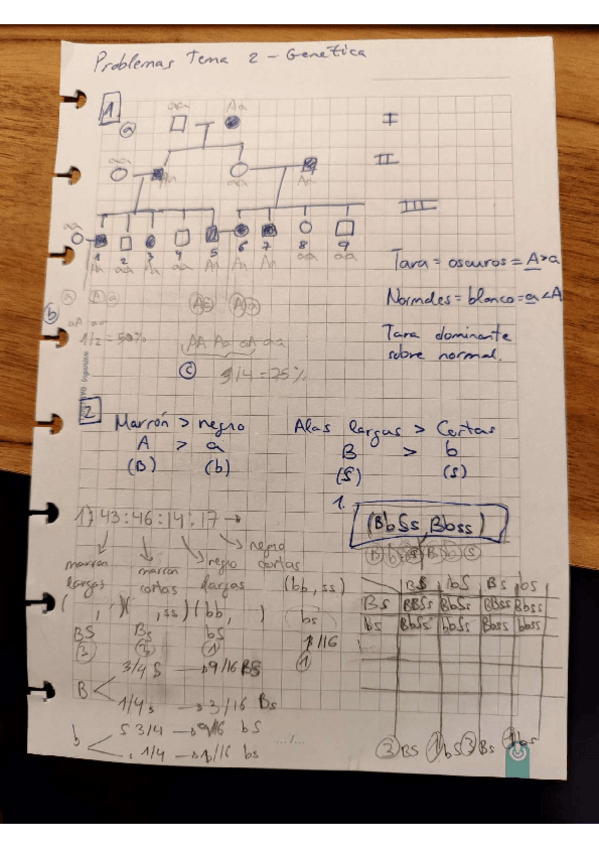 Problemas Tema 2 - Genética
1
a
aa Aa
I
aa Aa aa Aa
II
III
aa
1 2 3 4 5 6 7 8 9
Aa aa Aa aa Aa Aa Aa aa aa
Tara = oscuros = A > a
Normales = blanco = a < A
Tara dominante
sobre normal.
b
a A a
aA aa
1/2 = 50%
Aa Aa
AA Aa aA aa
c 3/4 = 75%
2
Marrón > negro
A > a
(B) (b)
Alas largas > Cortas
B > b
(S) (s)
1.
(BbSs, Bbss)
B b s B b s
1) 43 : 46 : 14 : 17 →
marrón largas
marrón cortas
negro largas
negro cortas
( , )( , ss)(bb, ) (bb, ss)
BS Bs bS bs
3 3 1 1
1/16
BS bS Bs bs
Bs BBSs BbSs BBss Bbss
bs BbSs bbSs Bbss bbss
B
3/4 S → 9/16 BS
1/4 s → 3/16 Bs
b
S 3/4 → bS
1/4 → 1/16 bs
.../...
3 BS 1 bS 3 Bs 1 bs